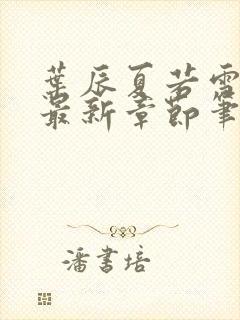 葉辰夏若雪
最新章節筆
潘書培